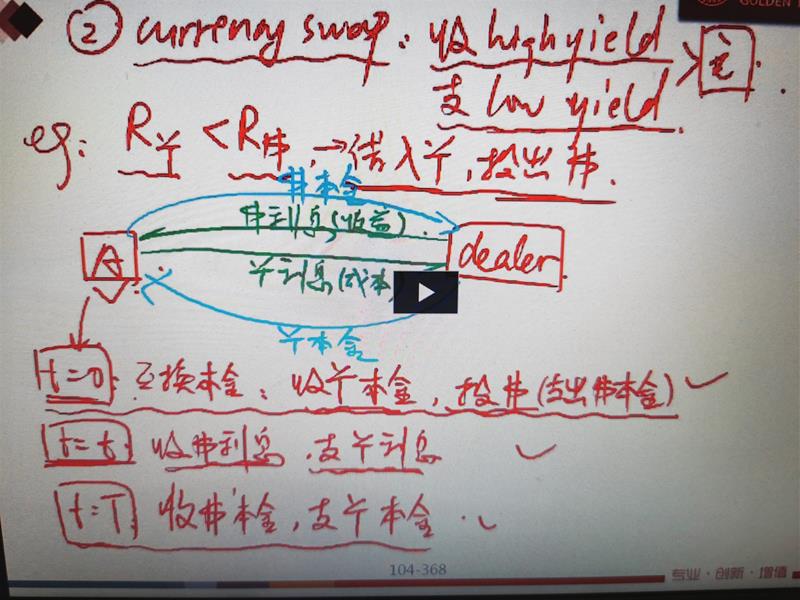 GOLDEN
② currency swap: 收 high yield
支 low yield
eg: R¥ < R₣ → 借入¥, 投出₣.
₣本金
₣利息(收益).
A
dealer
¥利息(成本)
¥本金
t=0: 互换本金: 收¥本金, 投₣(支出₣本金) ✓
t=t 收₣利息, 支¥利息 ✓
t=T 收₣本金, 支¥本金. ✓
104-368
专业·创新·增值